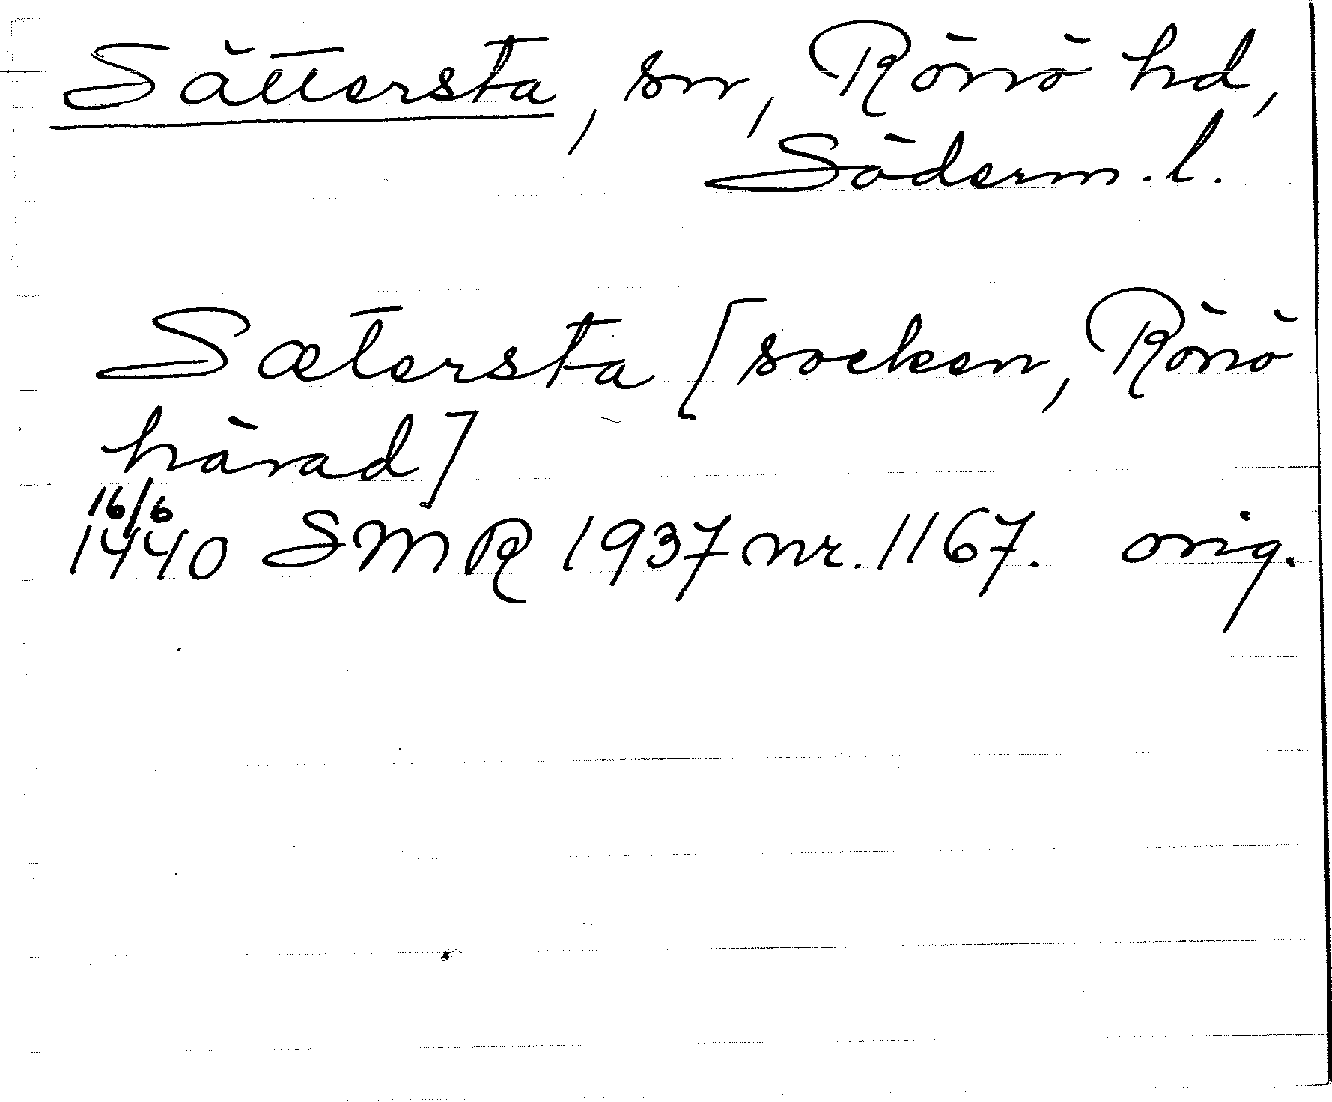 Sättersta, sn, Rönö hd,
Söderm. l.
Sætersta [socken, Rönö
härad]
16/6
1440 SMR 1937 nr. 1167. orig.